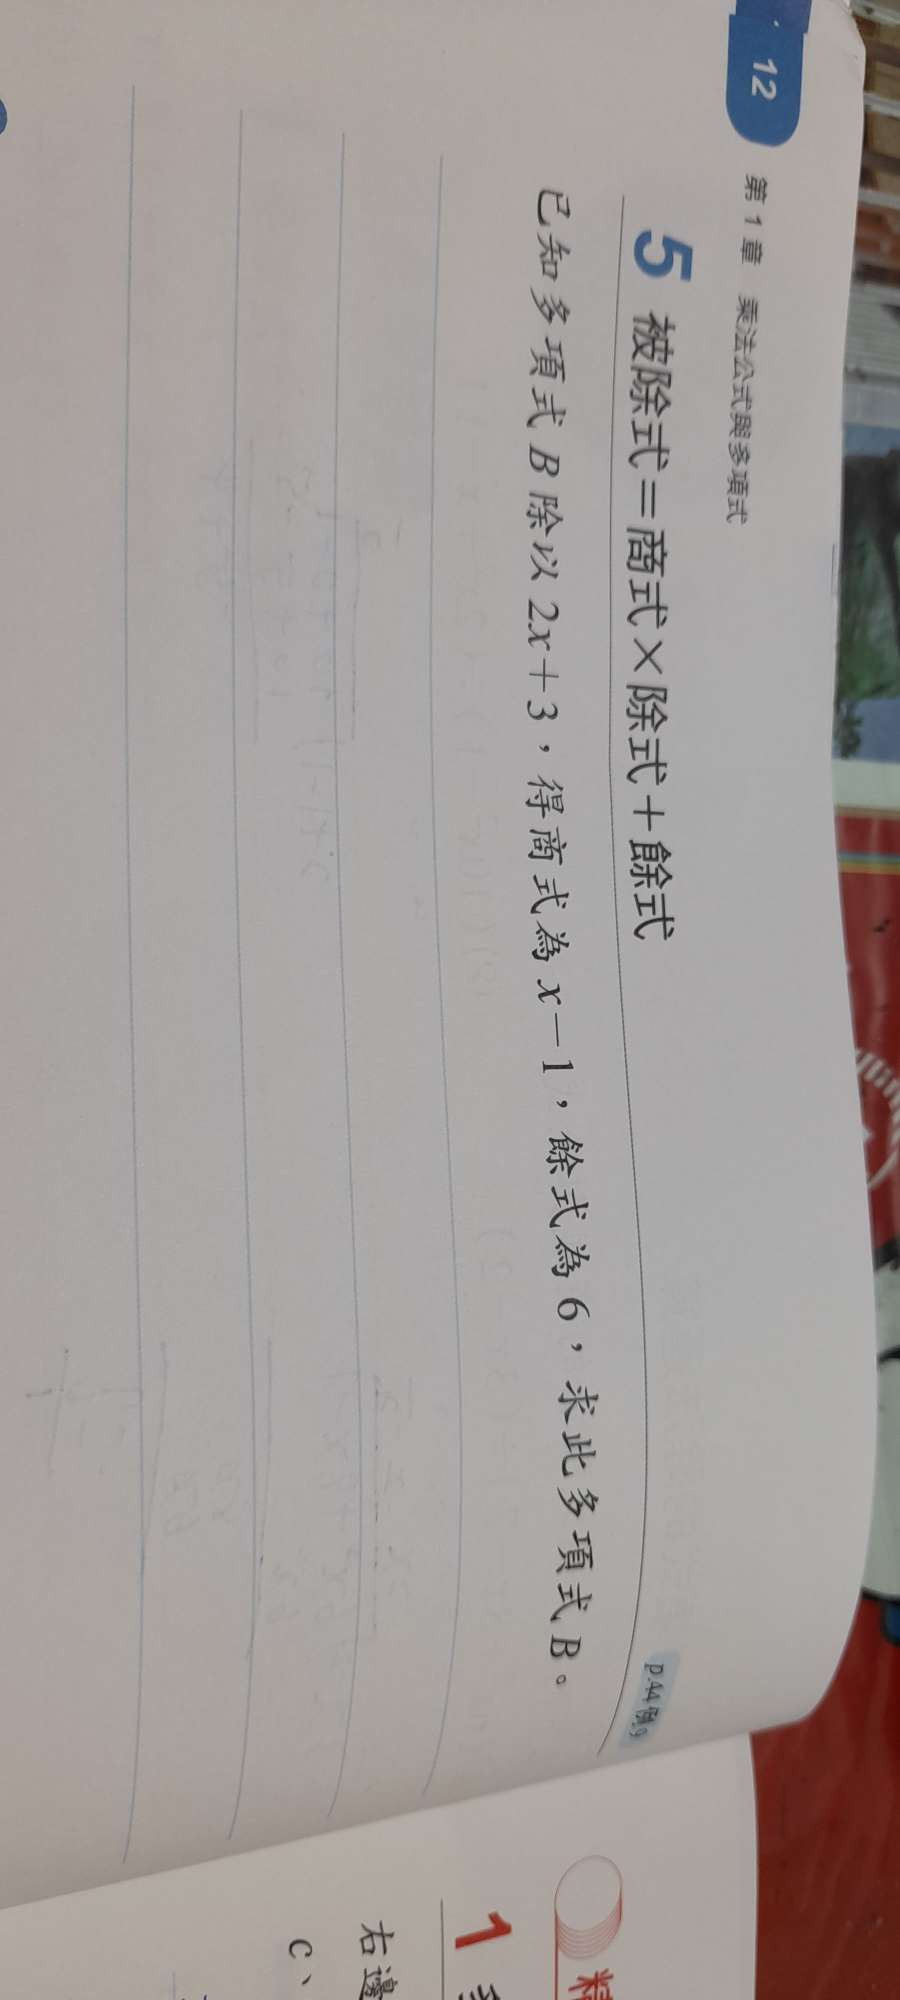 12
第1章 乘法公式與多項式
5 被除式＝商式×除式＋餘式
p.44 例9
已知多項式 B 除以 2x＋3，得商式為 x－1，餘式為 6，求此多項式 B。
精
1
右邊
c、